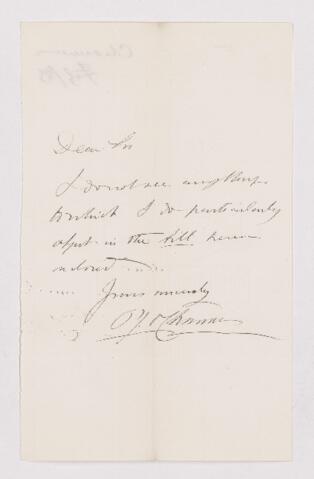 Dear Sir
I do not see anything
to which I do particularly
object in the bill herein
enclosed
Yours sincerely